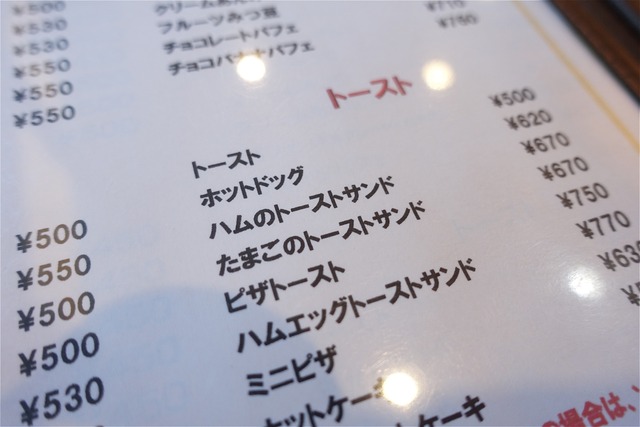 ¥500
¥530
¥530
¥550
¥550
¥550
フルーツみつ豆
チョコレートパフェ ¥710
チョコバナナパフェ ¥750
トースト
トースト ¥500
ホットドッグ ¥620
ハムのトーストサンド ¥670
たまごのトーストサンド ¥670
ピザトースト ¥750
ハムエッグトーストサンド ¥770
ミニピザ
¥500
¥550
¥500
¥500
¥530
の場合は、